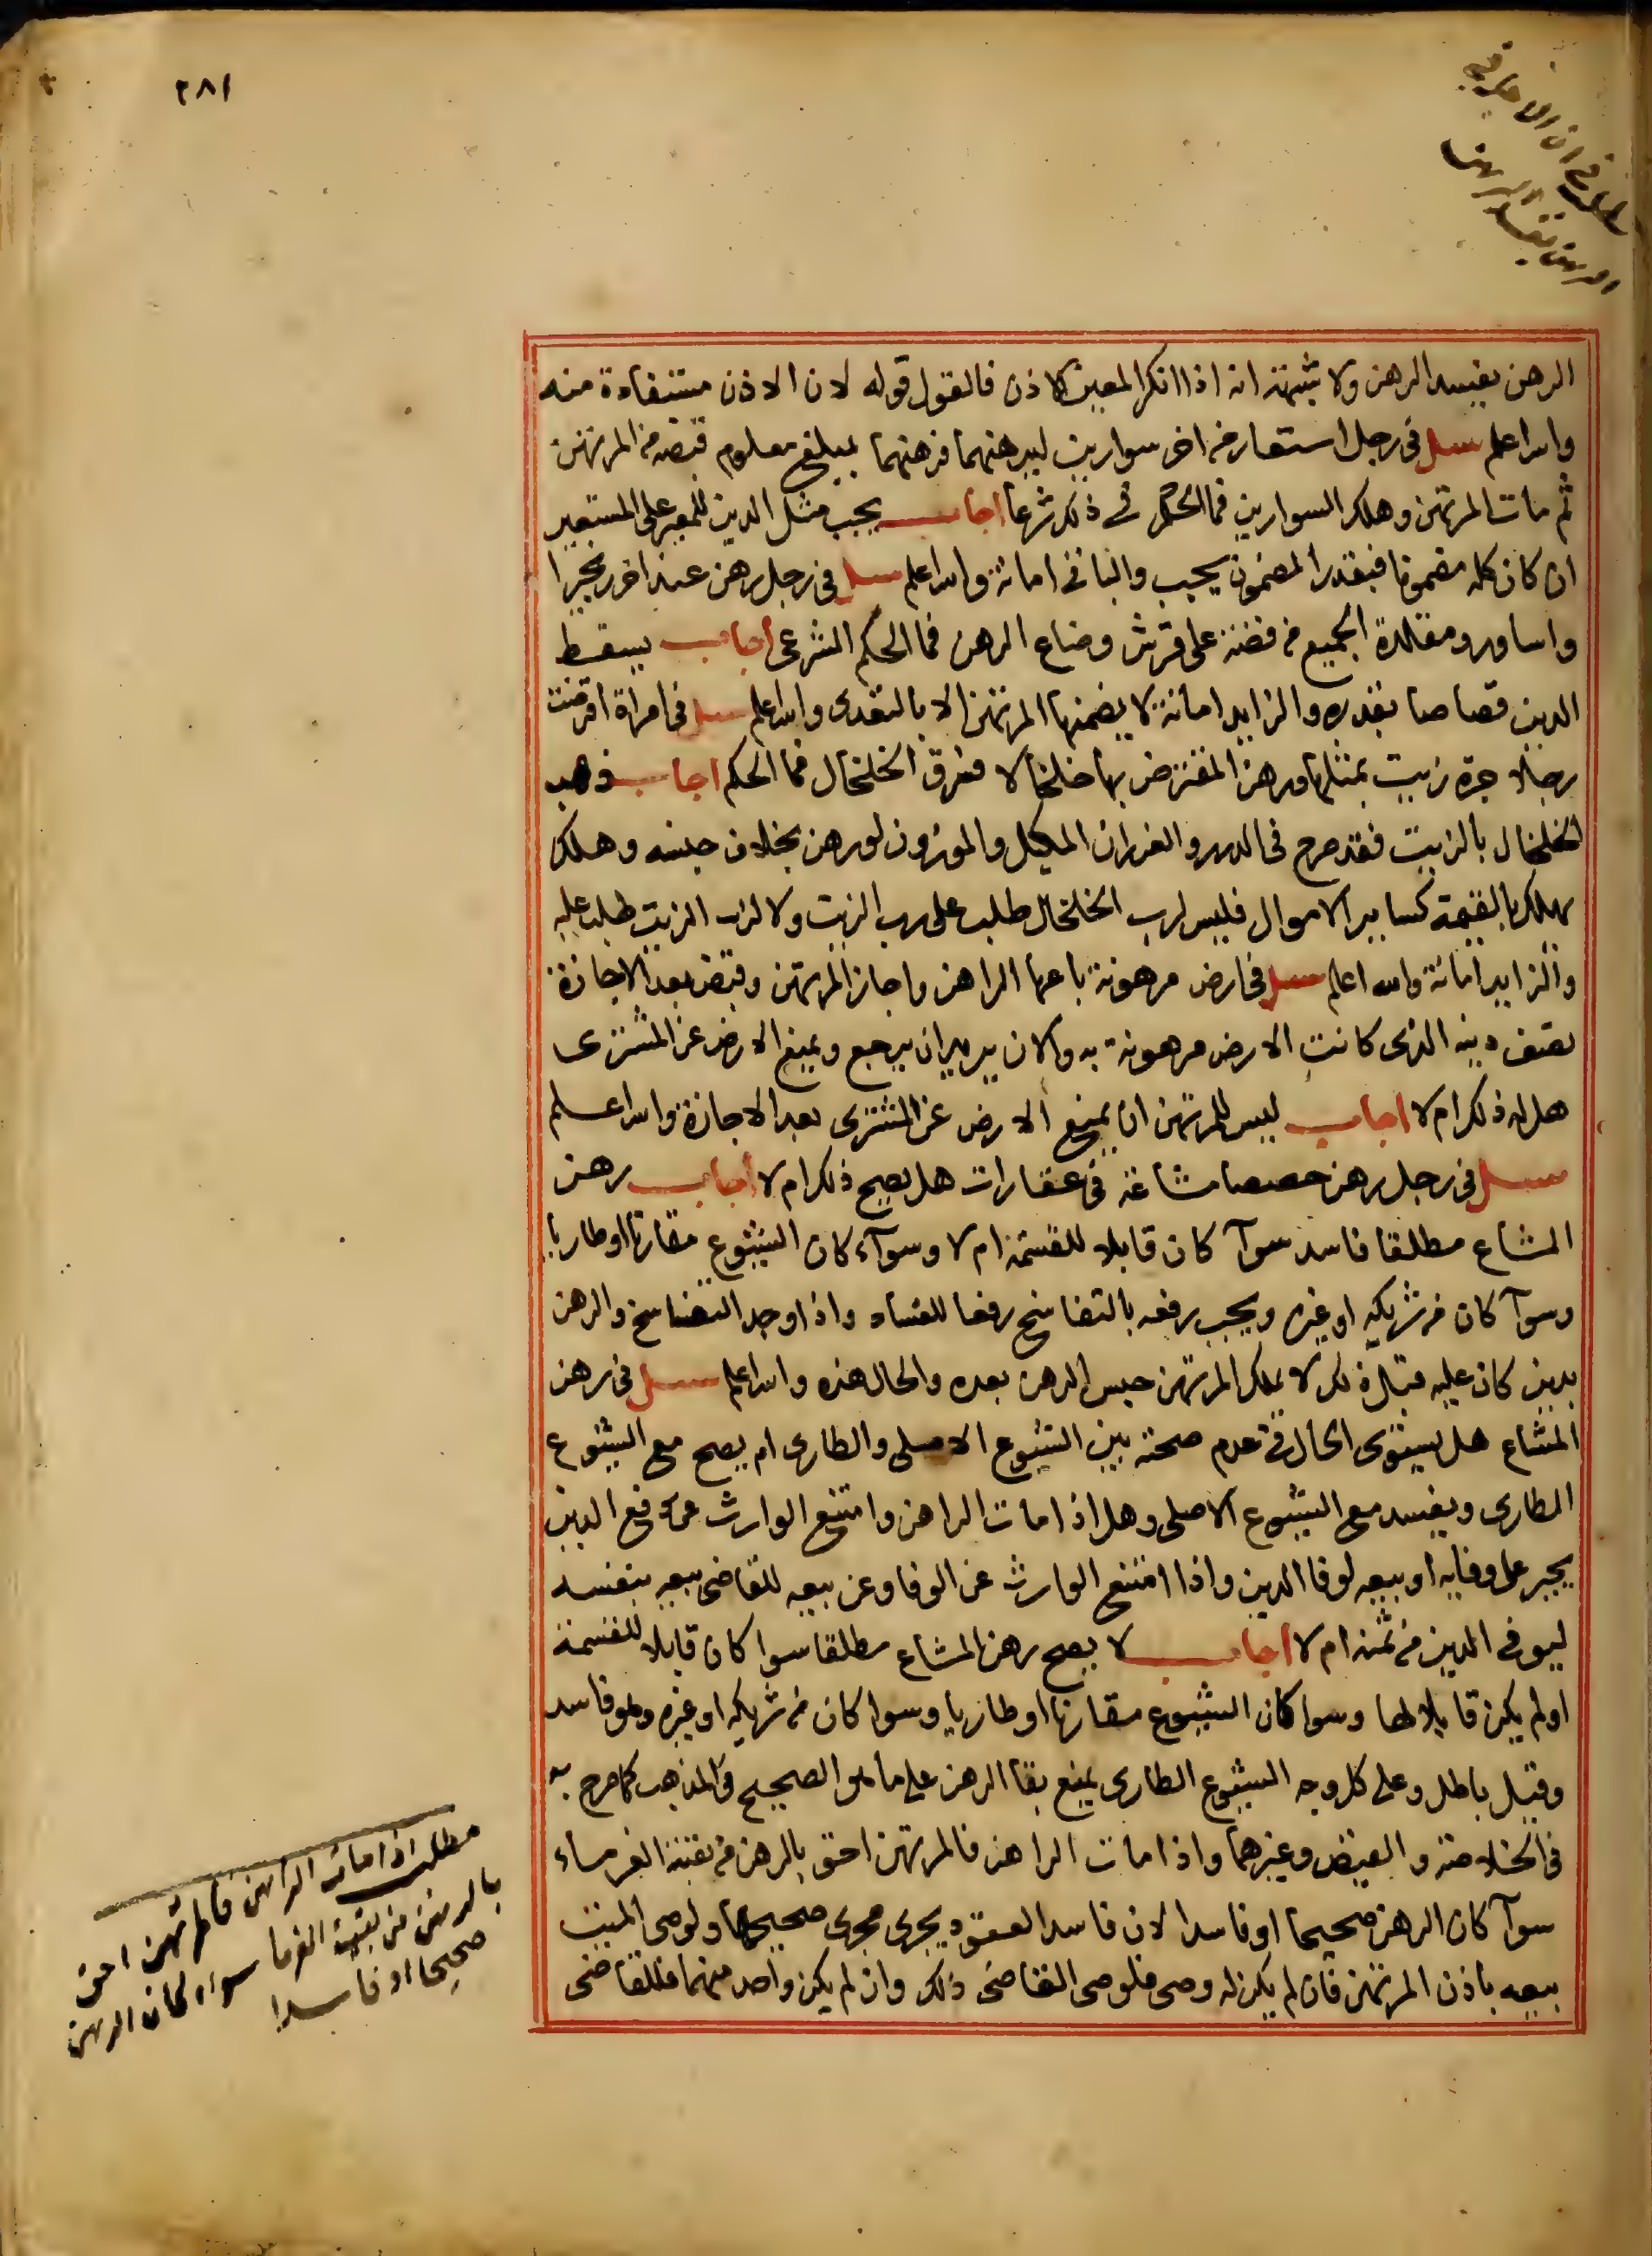 ٢٨١
الرهن يفسد الرهن ولا شبهة انه اذا انكر المعير الاذن فالقول قوله لان الاذن مستفادة منه
والله اعلم سئل في رجل استعار من اخر سوارين ليرهنهما فرهنهما بمبلغ معلوم قبضه من المرتهن
ثم مات المرتهن وهلك السوارين فما الحكم في ذلك شرعا اجاب يجب مثل الدين للمعير على المستعير
ان كان كله مضمونا فبقدر المضمون يجب والباقي امانة والله اعلم سئل في رجل رهن عند اخر
واساور ومقلدة الجميع من فضة على قرش وضاع الرهن فما الحكم الشرعي اجاب يسقط
الدين قصاصا بقدره والزايد امانة لا يضمنها المرتهن الا بالتعدي والله اعلم سئل في امراة اقرضت
رجلا جرة زيت بمثلها ورهن المقترض بها خلخالا فسرق الخلخال فما الحكم اجاب ذهب
الخلخال بالزيت فقد صرح في الدرر والغرر ان المكيل والموزون لو رهن بخلاف جنسه وهلك
يهلك بالقيمة كساير الاموال فليس لرب الخلخال طلب على رب الزيت ولا لرب الزيت طلب عليه
والزايد امانة والله اعلم سئل في ارض مرهونة باعها الراهن واجاز المرتهن وقبض بعد الاجازة
نصف دينه الذي كانت الارض مرهونة به والان يريد ان يرجع ويمنع الارض عن المشتري
هل له ذلك ام لا اجاب ليس للمرتهن ان يمنع الارض عن المشتري بعد الاجازة والله اعلم
سئل في رجل رهن حصصا مشاعة في عقارات هل يصح ذلك ام لا اجاب رهن
المشاع مطلقا فاسد سوآ كان قابلا للقسمة ام لا وسوآء كان الشيوع مقارنا او طاريا
وسوآ كان من شريكه او غيره ويجب رفعه بالتفاسخ رفعا للفساد واذا وجد التفاسخ والرهن
بدين كان عليه قبل ذلك لا يملك المرتهن حبس الرهن بعده والحال هذه والله اعلم سئل في رهن
المشاع هل يستوي الحال في عدم صحته بين الشيوع الاصلي والطاري ام يصح مع الشيوع
الطاري ويفسد مع الشيوع الاصلي وهل اذا مات الراهن وامتنع الوارث عن دفع الدين
يجبر على وفايه او بيعه لوفا الدين واذا امتنع الوارث عن الوفا وعن بيعه للقاضي بيعه بنفسه
ليوفي الدين من ثمنه ام لا اجاب لا يصح رهن المشاع مطلقا سوا كان قابلا للقسمة
او لم يكن قابلا لها وسوا كان الشيوع مقارنا او طاريا وسوا كان من شريكه او غيره وهو فاسد
وقيل باطل وعلى كل وجه الشيوع الطاري يمنع بقا الرهن على ما هو الصحيح في المذهب كما صرح به
في الخلاصة والفيض وغيرهما واذا مات الراهن فالمرتهن احق بالرهن من بقية الغرماء
سوآ كان الرهن صحيحا او فاسدا لان فاسد العقود يجري مجرى صحيحها ولوصي الميت
بيعه باذن المرتهن فان لم يكن له وصي فلوصي القاضي ذلك وان لم يكن واحد منهما فللقاضي
مطلب اذا مات الراهن فالمرتهن احق
بالرهن من بقية الغرما سواء كان الرهن
صحيحا او فاسدا